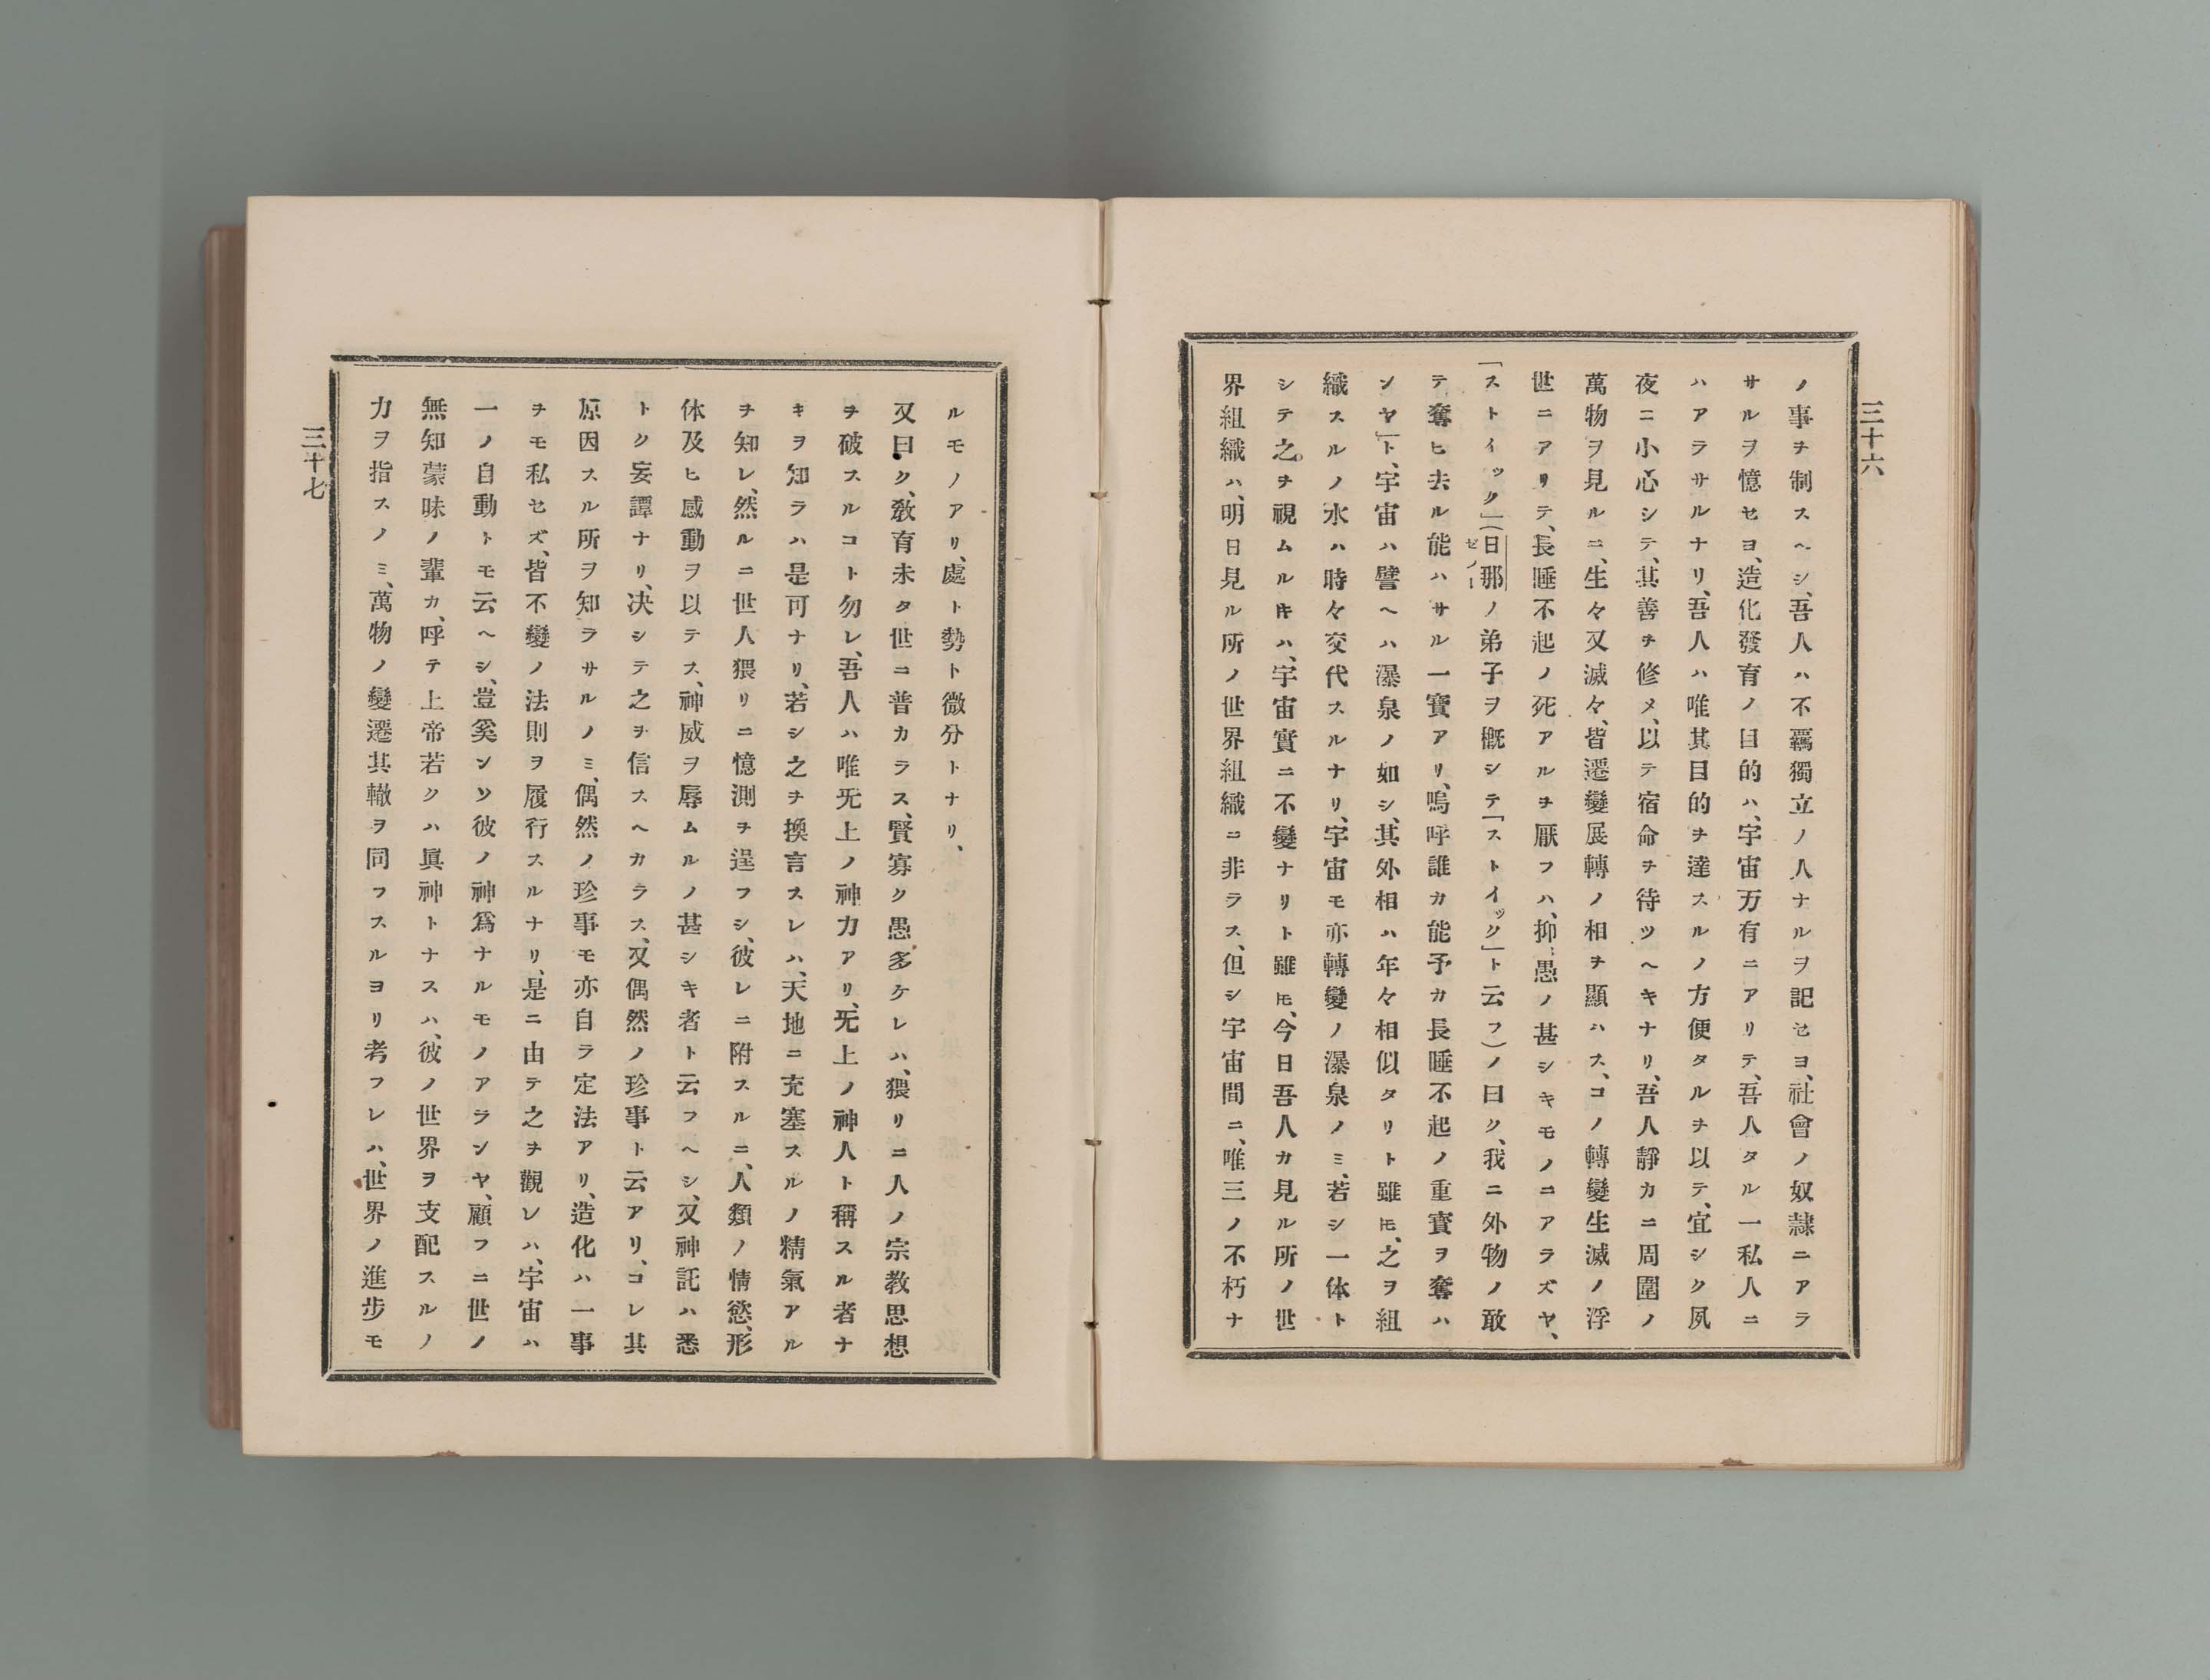 三十六
ノ事ヲ制スヘシ、吾人ハ不羈獨立ノ人ナルヲ記セヨ、社會ノ奴隷ニアラ
サルヲ憶セヨ、造化發育ノ目的ハ、宇宙万有ニアリテ、吾人タル一私人ニ
ハアラサルナリ、吾人ハ唯其目的ヲ達スルノ方便タルヲ以テ、宜シク夙
夜ニ小心シテ、其善ヲ修メ、以テ宿命ヲ待ツヘキナリ、吾人靜カニ周圍ノ
萬物ヲ見ルニ、生々又滅々、皆遷變展轉ノ相ヲ顯ハス、コノ轉變生滅ノ浮
世ニアリテ、長睡不起ノ死アルヲ厭フハ、抑愚ノ甚シキモノニアラズヤ、
「ストイック」(日那ゼノーノ弟子ヲ概シテ「ストイック」ト云フ)ノ曰ク、我ニ外物ノ敢
テ奪ヒ去ル能ハサル一寶アリ、嗚呼誰カ能予カ長睡不起ノ重寶ヲ奪ハ
ンヤ」ト、宇宙ハ譬ヘハ瀑泉ノ如シ、其外相ハ年々相似タリト雖𪜈、之ヲ組
織スルノ水ハ時々交代スルナリ、宇宙モ亦轉變ノ瀑泉ノミ、若シ一体ト
シテ之ヲ視ムル𬼀ハ、宇宙實ニ不變ナリト雖𪜈、今日吾人カ見ル所ノ世
界組織ハ、明日見ル所ノ世界組織ニ非ラス、但シ宇宙間ニ、唯三ノ不朽ナ
ルモノアリ、處ト勢ト微分トナリ、
又曰ク、敎育未タ世ニ普カラス、賢寡ク愚多ケレハ、猥リニ人ノ宗教思想
ヲ破スルコト勿レ、吾人ハ唯旡上ノ神力アリ、旡上ノ神人ト稱スル者ナ
キヲ知ラハ是可ナリ、若シ之ヲ換言スレハ、天地ニ充塞スルノ精氣アル
ヲ知レ、然ルニ世人猥リニ憶測ヲ逞フシ、彼レニ附スルニ、人類ノ情慾、形
体及ヒ感動ヲ以テス、神威ヲ辱ムルノ甚シキ者ト云フヘシ、又神託ハ悉
トク妄譚ナリ、决シテ之ヲ信スヘカラス、又偶然ノ珍事ト云アリ、コレ其
原因スル所ヲ知ラサルノミ、偶然ノ珍事モ亦自ラ定法アリ、造化ハ一事
ヲモ私セズ、皆不變ノ法則ヲ履行スルナリ、是ニ由テ之ヲ觀レハ、宇宙ハ
一ノ自動トモ云ヘシ、豈奚ンソ彼ノ神爲ナルモノアランヤ、顧フニ世ノ
無知蒙昧ノ輩カ、呼テ上帝若クハ眞神トナスハ、彼ノ世界ヲ支配スルノ
力ヲ指スノミ、萬物ノ變遷其轍ヲ同フスルヨリ考フレハ、世界ノ進步モ
三十七